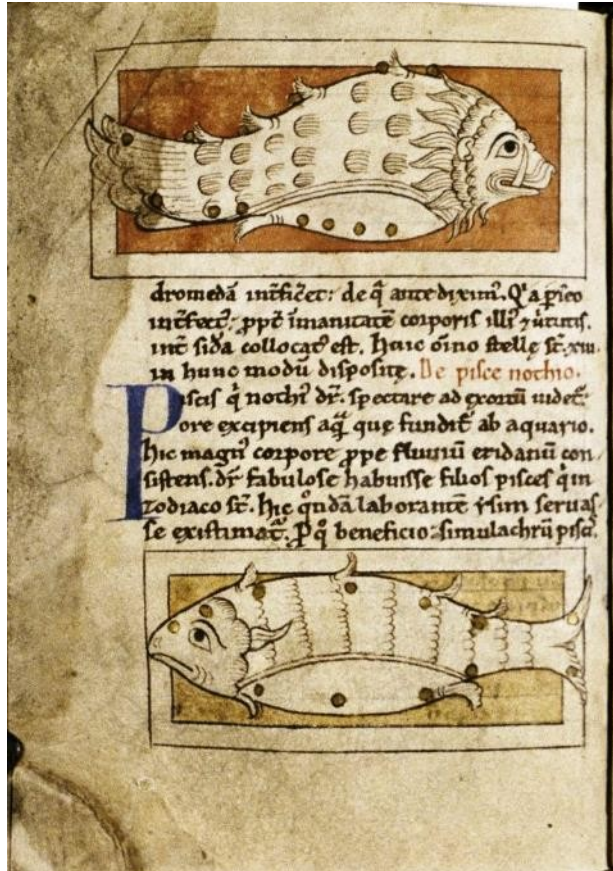 dromedā int̄fic̄et: de q̄ ante diximꝰ. Q' a p̄seo
int̄fectꝰ; ppt̄ īmanitatē corporis illiꝰ ⁊ ũtutis.
int̄ sid̄a collocatꝰ est. Huic oīno stellę st̄ .xiii.
in hunc modū disposite. De pisce nothio.
Piscis q̄ nothiꝰ dr̄. spectare ad exortū uidet̄.
ore excipiens aq̄ que fundit̄ ab aquario.
hic magnꝰ corpore ꝓpe fluuiū eridanū con
sistens. dr̄ fabulose habuisse filios pisces q̄ in
zodiaco st̄. Hic q̊ndā laborantē ysim seruas
se existimat̄. P q̊ beneficio: simulachrū piscꝭ